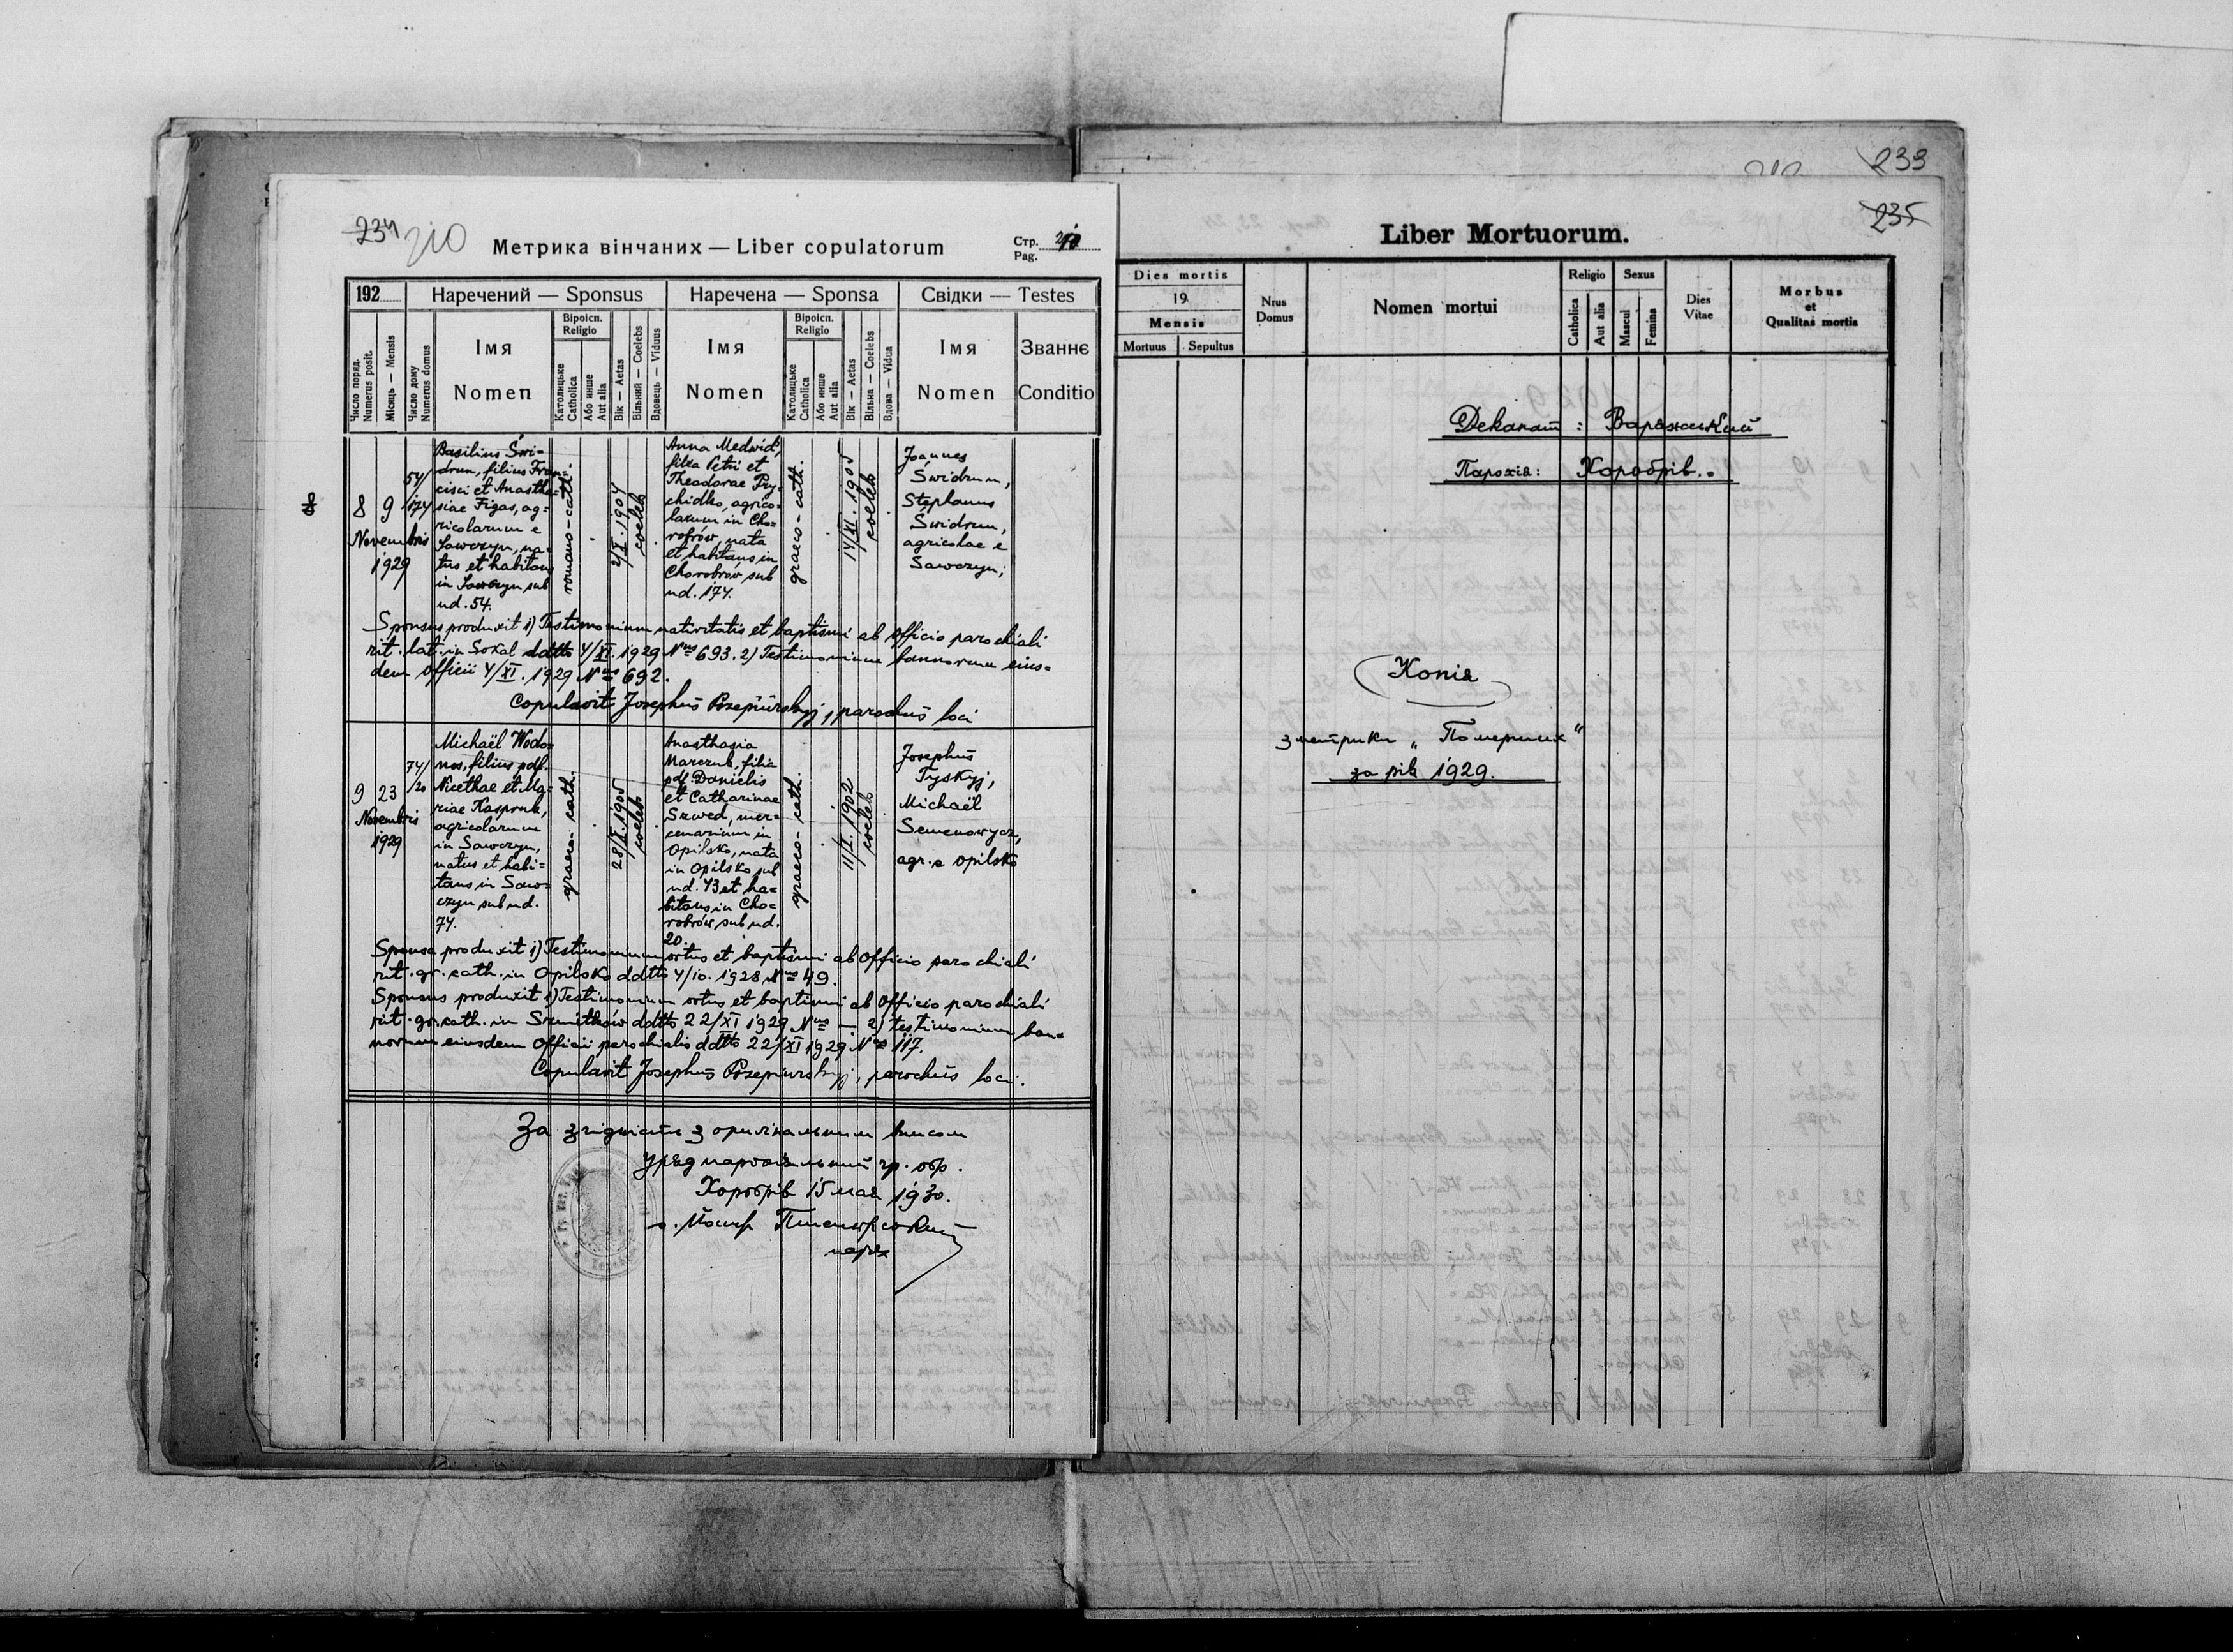 234 210
Метрика вінчаних — Liber copulatorum
Стр.
Pag.
192
Наречений — Sponsus
Наречена — Sponsa
Свідки — Testes
Число поряд.
Numerus posit.
Місяць — Mensis
Число дому
Numerus domus
Імя
Nomen
Віроісп.
Religio
Католицьке
Catholica
Або инше
Aut alia
Вік — Aetas
Вільний — Coelebs
Вдовець — Viduus
Імя
Nomen
Віроісп.
Religio
Католицьке
Catholica
Або инше
Aut alia
Вік — Aetas
Вільна — Coelebs
Вдова — Vidua
Імя
Nomen
Званнє
Conditio
8
8 9
Novembris
1929
54/
174
Basilius Świ-
drun, filius Fran-
cisci et Anastha-
siae Figas, ag-
ricolarum e
Sawczyn, na-
tus et habitans
in Sawczyn sub
nd. 54.
romano-cath.
2/X. 1904
coeleb
Anna Medwid,
filia Petri et
Theodorae Pry-
chidko, agrico-
larum in Cho-
robrów, nata
et habitans in
Chorobrów sub
nd. 174.
graeco-cath.
14/XI. 1905
coeleb
Joannes
Świdrun,
Stephanus
Świdrun,
agricolae e
Sawczyn;
Sponsus produxit 1) Testimonium nativitatis et baptismi ab Officio parochiali
rit. lat. in Sokal ddtto 4/XI. 1929 Nus 693. 2) Testimonium bannorum eius-
dem officii 4/XI. 1929 Nus 692.
Copulavit Josephus Pszepiurskyj, parochus loci
9 23
Novembris
1929
74/
20
Michaël Wodo-
nos, filius pdf.
Nicethae et Ma-
riae Kaspruk,
agricolarum
in Sawczyn,
natus et habi-
tans in Saw-
czyn sub nd.
74.
graeco-cath.
28/X. 1905
coeleb
Anasthasia
Marczuk, filia
pdf. Danielis
et Catharinae
Szwed, mer-
cenarium in
Opilsko, nata
in Opilsko sub
nd. 43 et ha-
bitans in Cho-
robrów sub nd.
20.
graeco-cath.
11/X. 1902
coeleb
Josephus
Tyskyj,
Michaël
Semenowycz,
agr. e Opilsko
Sponsa produxit 1) Testimonium ortus et baptismi ab Officio parochiali
rit. gr. cath. in Opilsko ddtto 4/10. 1928 Nus 49.
Sponsus produxit 1) Testimonium ortus et baptismi ab Officio parochiali
rit. gr. cath. in Szmitków ddtto 22/XI 1929 Nus — 2) testimonium ban-
norum eiusdem Officii parochialis ddtto 22/XI 1929 Nus 117.
Copulavit Josephus Pszepiurskyj, parochus loci.
За згідність з оригінальним вписом
Уряд парохіяльний гр. обр.
Хоробрів 15 мая 1930.
о. Йосиф
парох
233
235
Liber Mortuorum.
Dies mortis
19
Mensis
Mortuus
Sepultus
Nrus
Domus
Nomen mortui
Religio
Catholica
Aut alia
Sexus
Mascul
Femina
Dies
Vitae
Morbus
et
Qualitas mortis
Деканат : Варяжский
Парохія: Хоробрів.
Копія
з метрики „Померших"
за рік 1929.